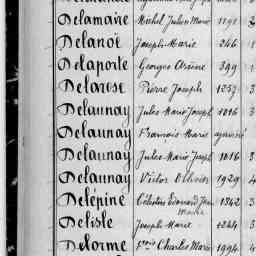 Delamaire Michel Julien Marie 1191 2
Delanoë Joseph Marie 246 1
Delaporte Georges Arsène 399 1
Delarose Pierre Joseph 1257 3
Delaunay Jules Marie Joseph 1816 3
Delaunay Francois Marie ajourné
Delaunay Jules Marie Joseph 1816 3
Delaunay Victor Ollivier 1929 4
Delépine Célestin Edouard Jean 1342 3
Marie
Delisle Joseph Marie 1244 3
Delorme Charles Marie 1994 4